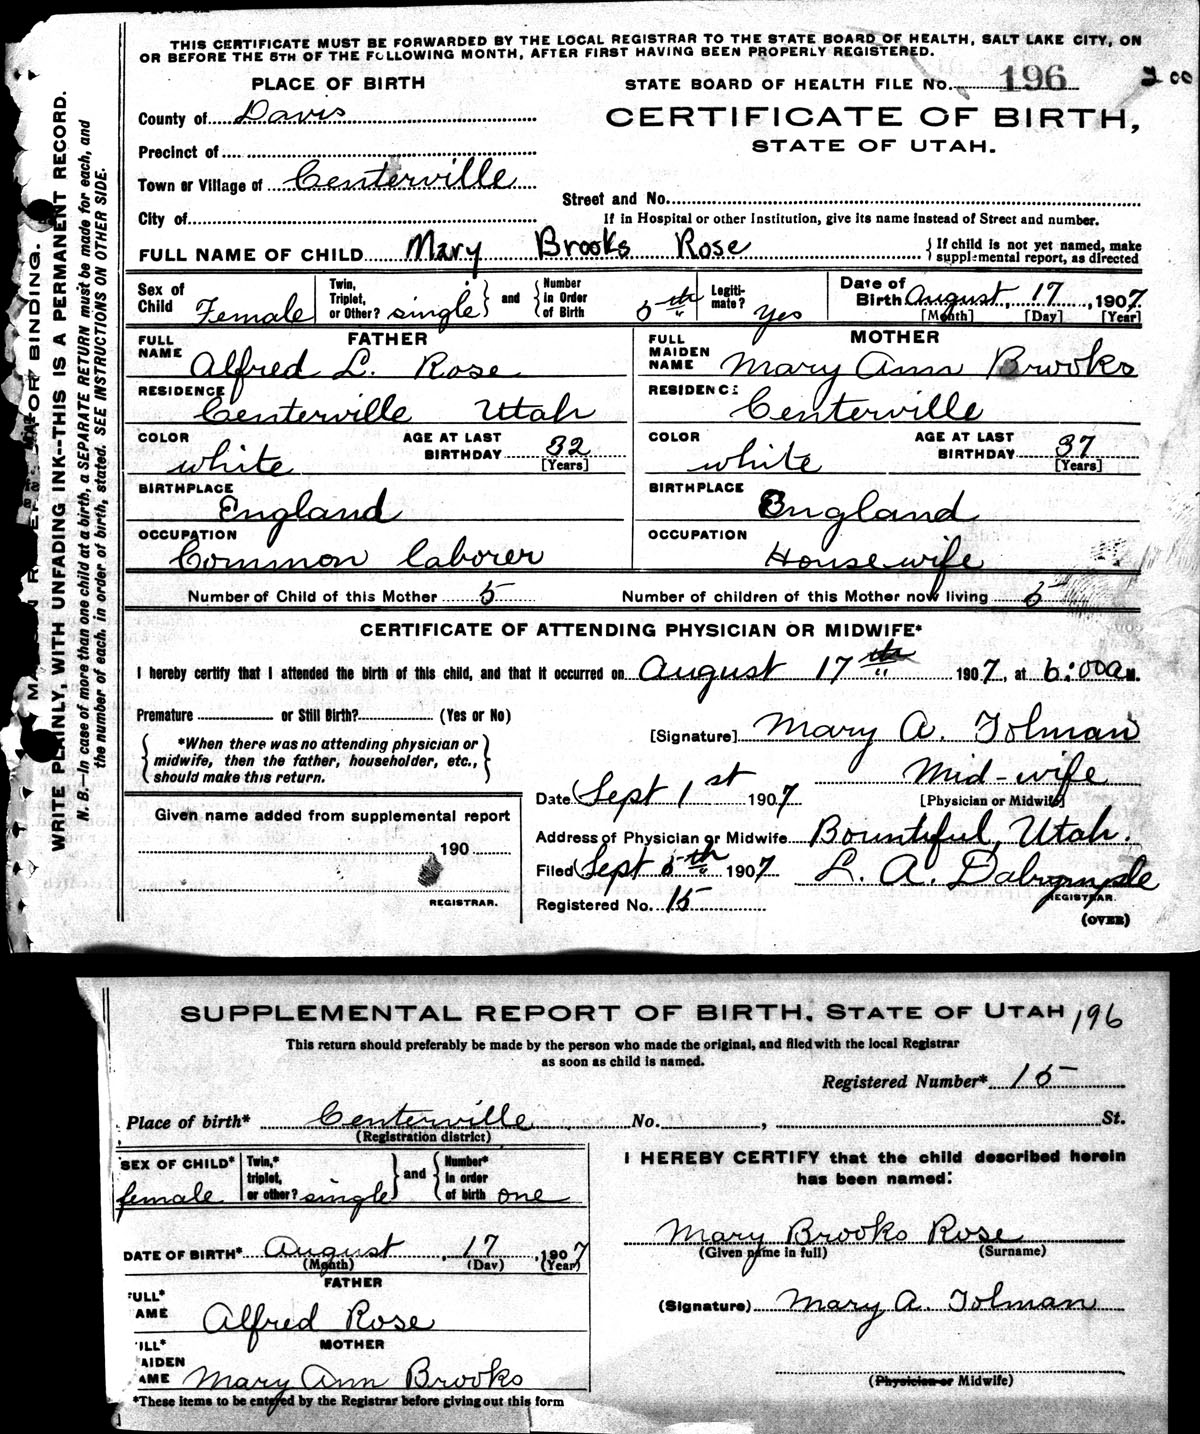 THIS CERTIFICATE MUST BE FORWARDED BY THE LOCAL REGISTRAR TO THE STATE BOARD OF HEALTH, SALT LAKE CITY, ON
OR BEFORE THE 5TH OF THE FOLLOWING MONTH, AFTER FIRST HAVING BEEN PROPERLY REGISTERED.
PLACE OF BIRTH
STATE BOARD OF HEALTH FILE No. 196
2 00
County of Davis
CERTIFICATE OF BIRTH,
STATE OF UTAH.
Precinct of
Town or Village of Centerville
Street and No.
City of
If in Hospital or other Institution, give its name instead of Street and number.
FULL NAME OF CHILD Mary Brooks Rose
If child is not yet named, make
supplemental report, as directed
Sex of Child Female
Twin, Triplet, or Other? single and Number in Order of Birth 5th
Legitimate? Yes
Date of Birth August 17, 1907
[Month] [Day] [Year]
FATHER
FULL NAME Alfred L. Rose
MOTHER
FULL MAIDEN NAME Mary Ann Brooks
RESIDENCE Centerville Utah
RESIDENCE Centerville
COLOR white AGE AT LAST BIRTHDAY 32 [Years]
COLOR white AGE AT LAST BIRTHDAY 37 [Years]
BIRTHPLACE England
BIRTHPLACE England
OCCUPATION Common laborer
OCCUPATION Housewife
Number of Child of this Mother 5 Number of children of this Mother now living 5
CERTIFICATE OF ATTENDING PHYSICIAN OR MIDWIFE*
I hereby certify that I attended the birth of this child, and that it occurred on August 17th 1907, at 6:00 a M.
Premature or Still Birth? (Yes or No)
*When there was no attending physician or
midwife, then the father, householder, etc.,
should make this return.
[Signature] Mary A. Tolman
Mid-wife
[Physician or Midwife]
Date Sept 1st 1907
Given name added from supplemental report
190
REGISTRAR.
Address of Physician or Midwife Bountiful, Utah.
Filed Sept 5th 1907 L. A. Dalrymple
REGISTRAR.
Registered No. 15
(OVER)
WRITE PLAINLY, WITH UNFADING INK--THIS IS A PERMANENT RECORD.
N. B.--In case of more than one child at a birth, a SEPARATE RETURN must be made for each, and
the number of each, in order of birth, stated. SEE INSTRUCTIONS ON OTHER SIDE.
FOR BINDING.
SUPPLEMENTAL REPORT OF BIRTH, STATE OF UTAH 196
This return should preferably be made by the person who made the original, and filed with the local Registrar
as soon as child is named.
Registered Number* 15
Place of birth* Centerville No. , St.
(Registration district)
SEX OF CHILD* female
Twin,* triplet, or other? single and Number* in order of birth one
I HEREBY CERTIFY that the child described herein
has been named:
Mary Brooks Rose
(Given name in full) (Surname)
DATE OF BIRTH* August, 17, 1907
(Month) (Day) (Year)
FATHER
ULL* AME Alfred Rose
(Signature) Mary A. Tolman
MOTHER
ILL* AIDEN AME Mary Ann Brooks
(Physician or Midwife)
*These items to be entered by the Registrar before giving out this form